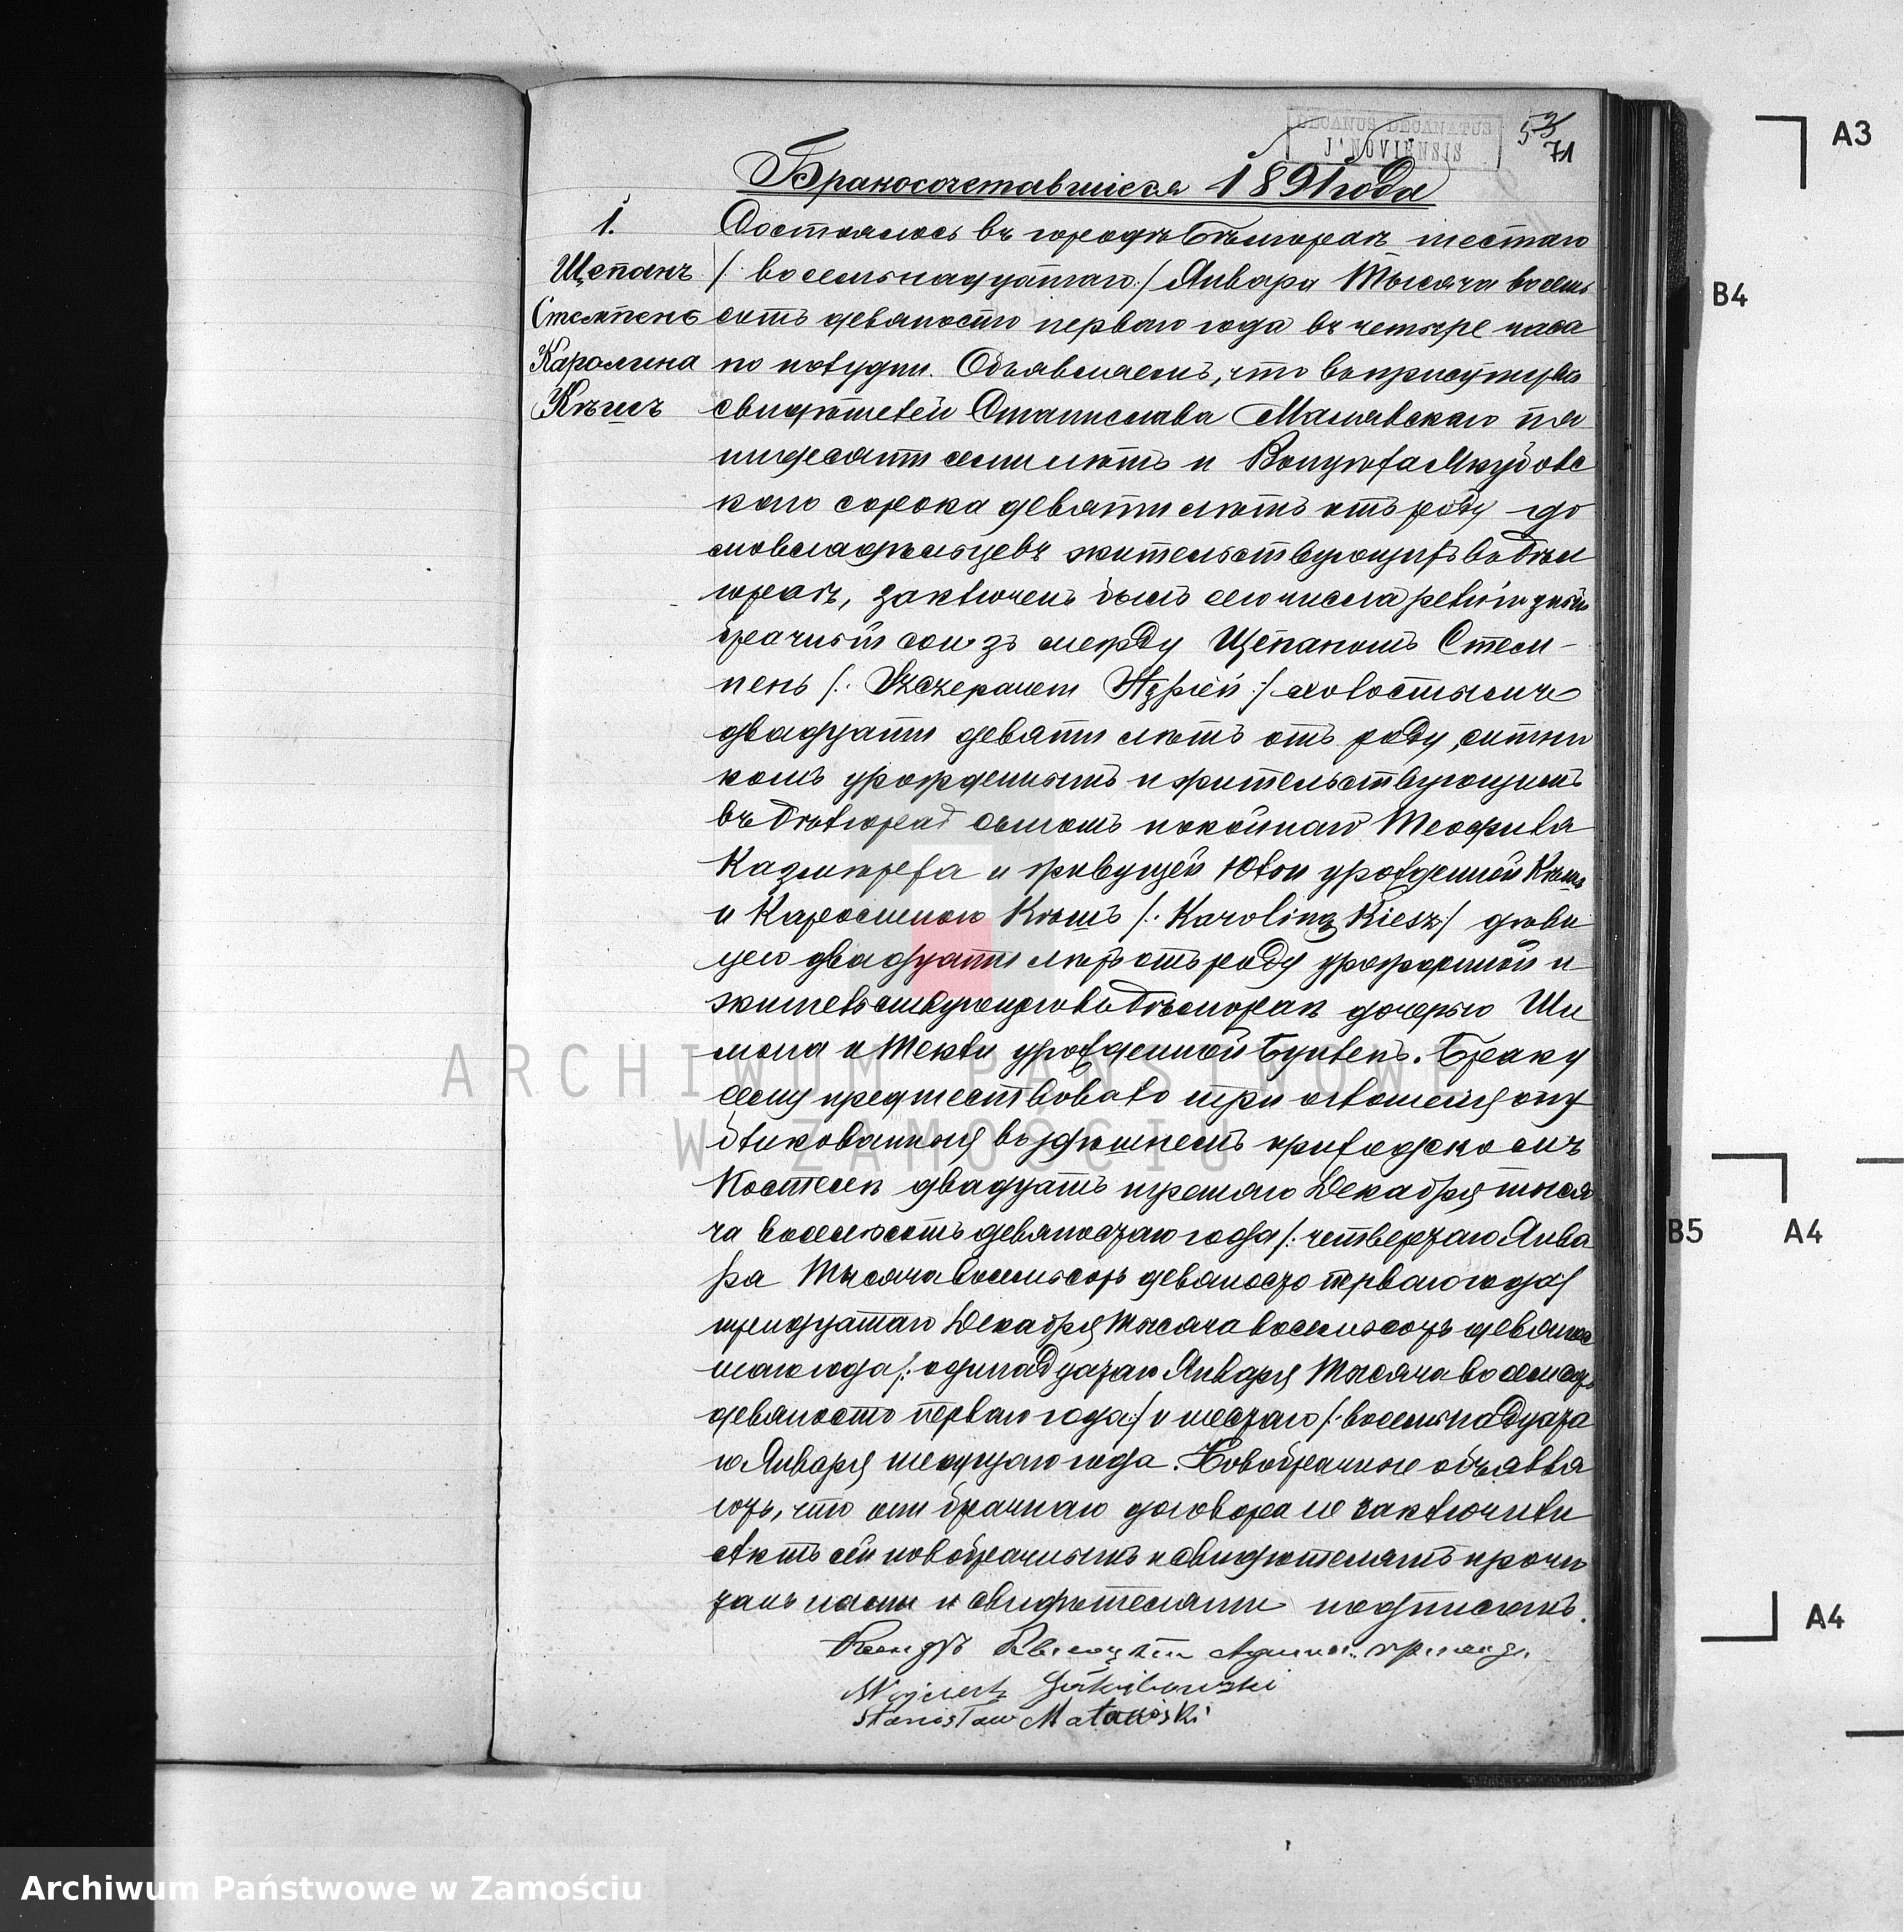 DECANUS DECANATUS
J'NOVIENSIS
71
Бракосочетавшіеся 1891 года
1.
Щепанъ
Стемпень
Каролина
Кѣшъ
Состоялось въ городѣ Бѣлгораѣ шестаго
/: восемьнадцатаго :/ Января Тысяча восемь
сотъ девяносто перваго года въ четыре часа
по полудни. Объявляемъ, что въ присутствіи
свидѣтелей Станислава Малявскаго пя
тидесяти семи лѣтъ и
каго сорока девяти лѣтъ отъ роду до
мовладѣльцевъ жительствующихъ въ Бѣл
гораѣ, заключенъ былъ сего числа религіозный
брачный союзъ между Щепаномъ Стем-
пень /: :/ холостымъ
двадцати девяти лѣтъ отъ роду, ситни
комъ урожденнымъ и жительствующимъ
въ Бѣлгораѣ сыномъ покойнаго Теофиля
и живущей Юліи урожденной Кѣшъ
и Каролиною Кѣшъ /: Karoling Kiesz :/ дѣви
цею двадцати лѣтъ отъ роду урожденной и
жительствующею въ Бѣлгораѣ дочерью Ши
мона и Текли урожденной . Браку
сему предшествовало три оглашенія опу
бликованныя въ здѣшнемъ приходскомъ
Костелѣ двадцать третьяго Декабря тыся
ча восемьсотъ девяностаго года /: четвертаго Янва
ря Тысяча восемьсотъ девяносто перваго года /
тридцатаго Декабря Тысяча восемьсотъ девянос
таго года /: одинадцатаго Января Тысяча восемьсотъ
девяносто перваго года :/ и шестаго /: восемьнадцата
го Января текущаго года. Новобрачные объявля
ютъ, что они брачнаго договора не заключили
Актъ сей новобрачнымъ и свидѣтелямъ прочи
танъ нами и свидѣтелями подписанъ.
Ксендзъ
Wojciech
Stanisław Malawski
ARCHIWUM PAŃSTWOWE
W ZAMOŚCIU
A3
B4
B5
A4
A4
Archiwum Państwowe w Zamościu